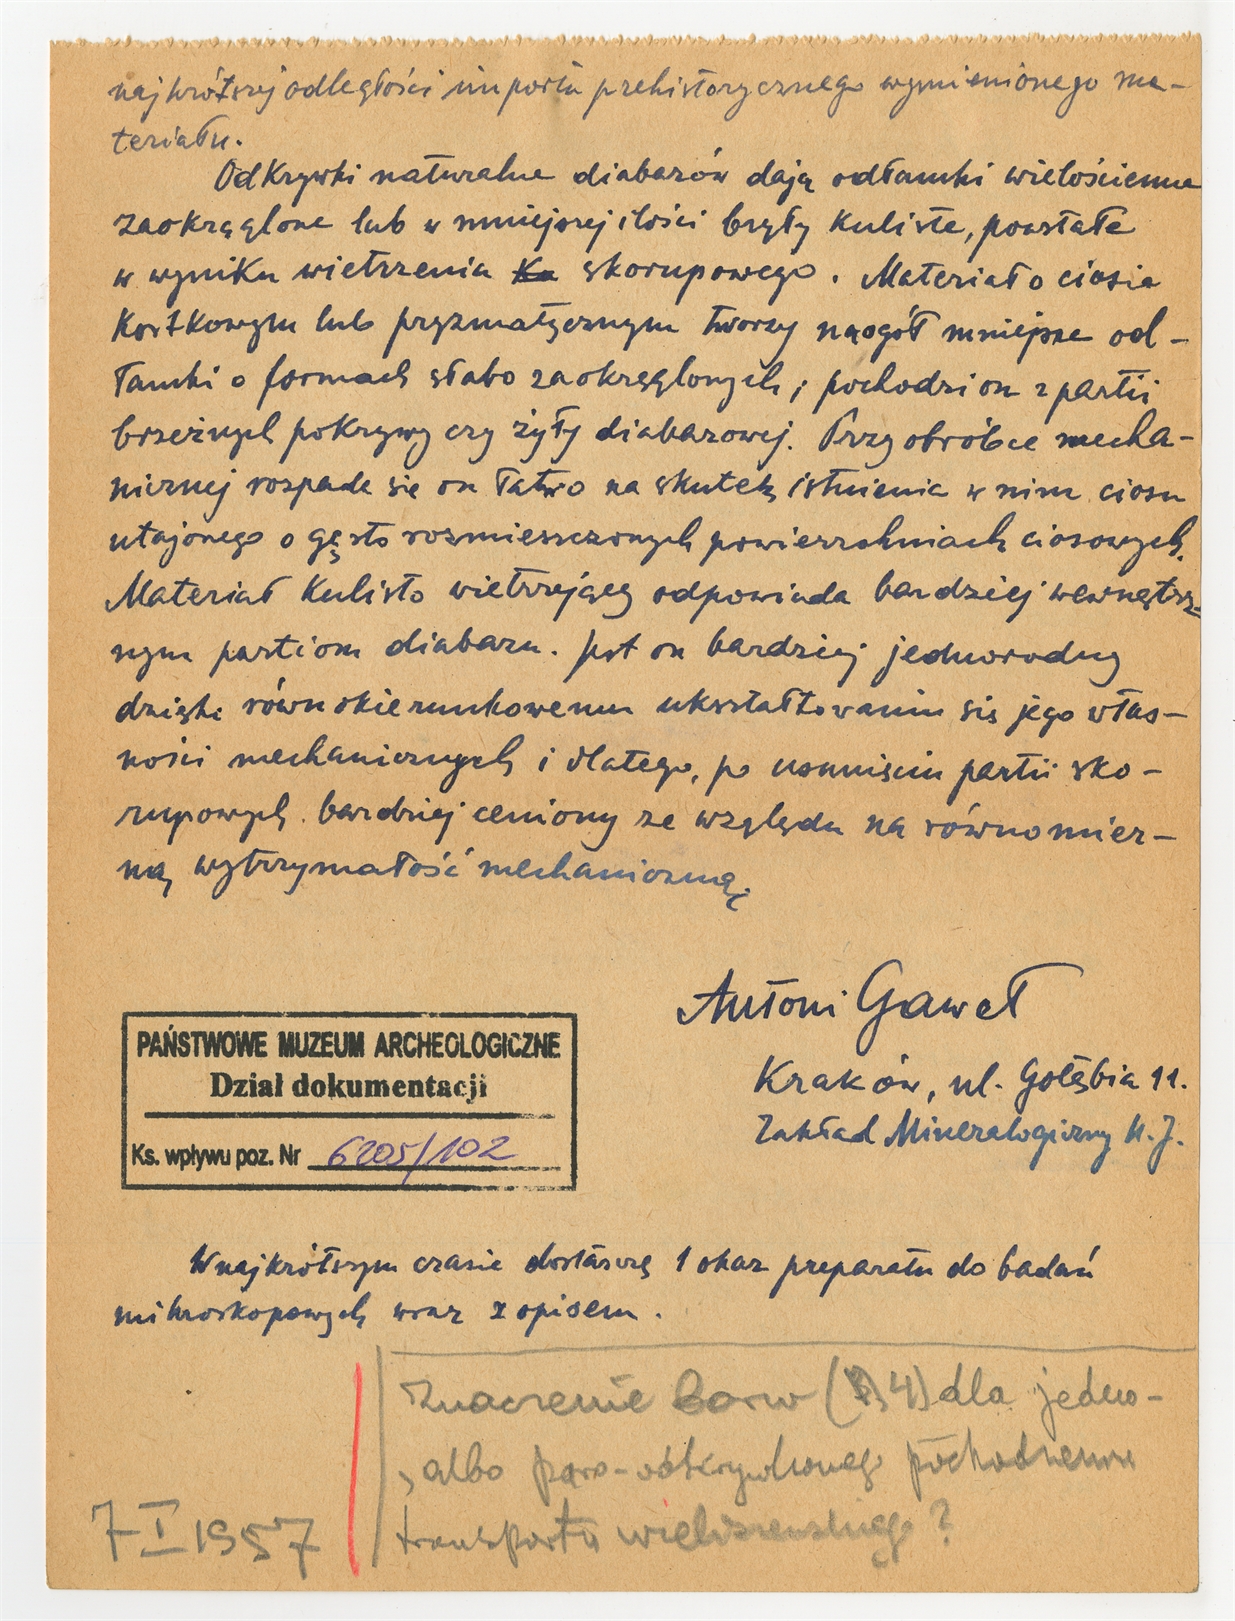 najkrótszej odległości importu prehistorycznego wymienionego ma-
teriału.
Odkrywki naturalne diabazów dają odłamki wielościenne
zaokrąglone lub w mniejszej ilości bryły kuliste, powstałe
w wyniku wietrzenia skorupowego. Materiał o ciosie
kostkowym lub pryzmatycznym tworzy naogół mniejsze od-
łamki o formach słabo zaokrąglonych; pochodzi on z partii
brzeżnych pokrywy czy żyły diabazowej. Przy obróbce mecha-
nicznej rozpada się on łatwo na skutek istnienia w nim ciosu
utajonego o gęsto rozmieszczonych powierzchniach ciosowych.
Materiał kulisto wietrzejący odpowiada bardziej wewnętrz-
nym partiom diabazu. Jest on bardziej jednorodny
dzięki równokierunkowemu ukształtowaniu się jego włas-
ności mechanicznych i dlatego, po usunięciu partii sko-
rupowych bardziej ceniony ze względu na równomier-
ną wytrzymałość mechaniczną.
Antoni Gaweł
Kraków, ul. Gołębia 11.
Zakład Mineralogiczny U.J.
PAŃSTWOWE MUZEUM ARCHEOLOGICZNE
Dział dokumentacji
Ks. wpływu poz. Nr 6205/102
W najkrótszym czasie dostarczę 1 okaz preparatu do badań
mikroskopowych wraz z opisem.
Znaczenie barw ( 4) dla jedno-
albo paro-odkrywkowego pochodzenia
transportu
7 I 1957